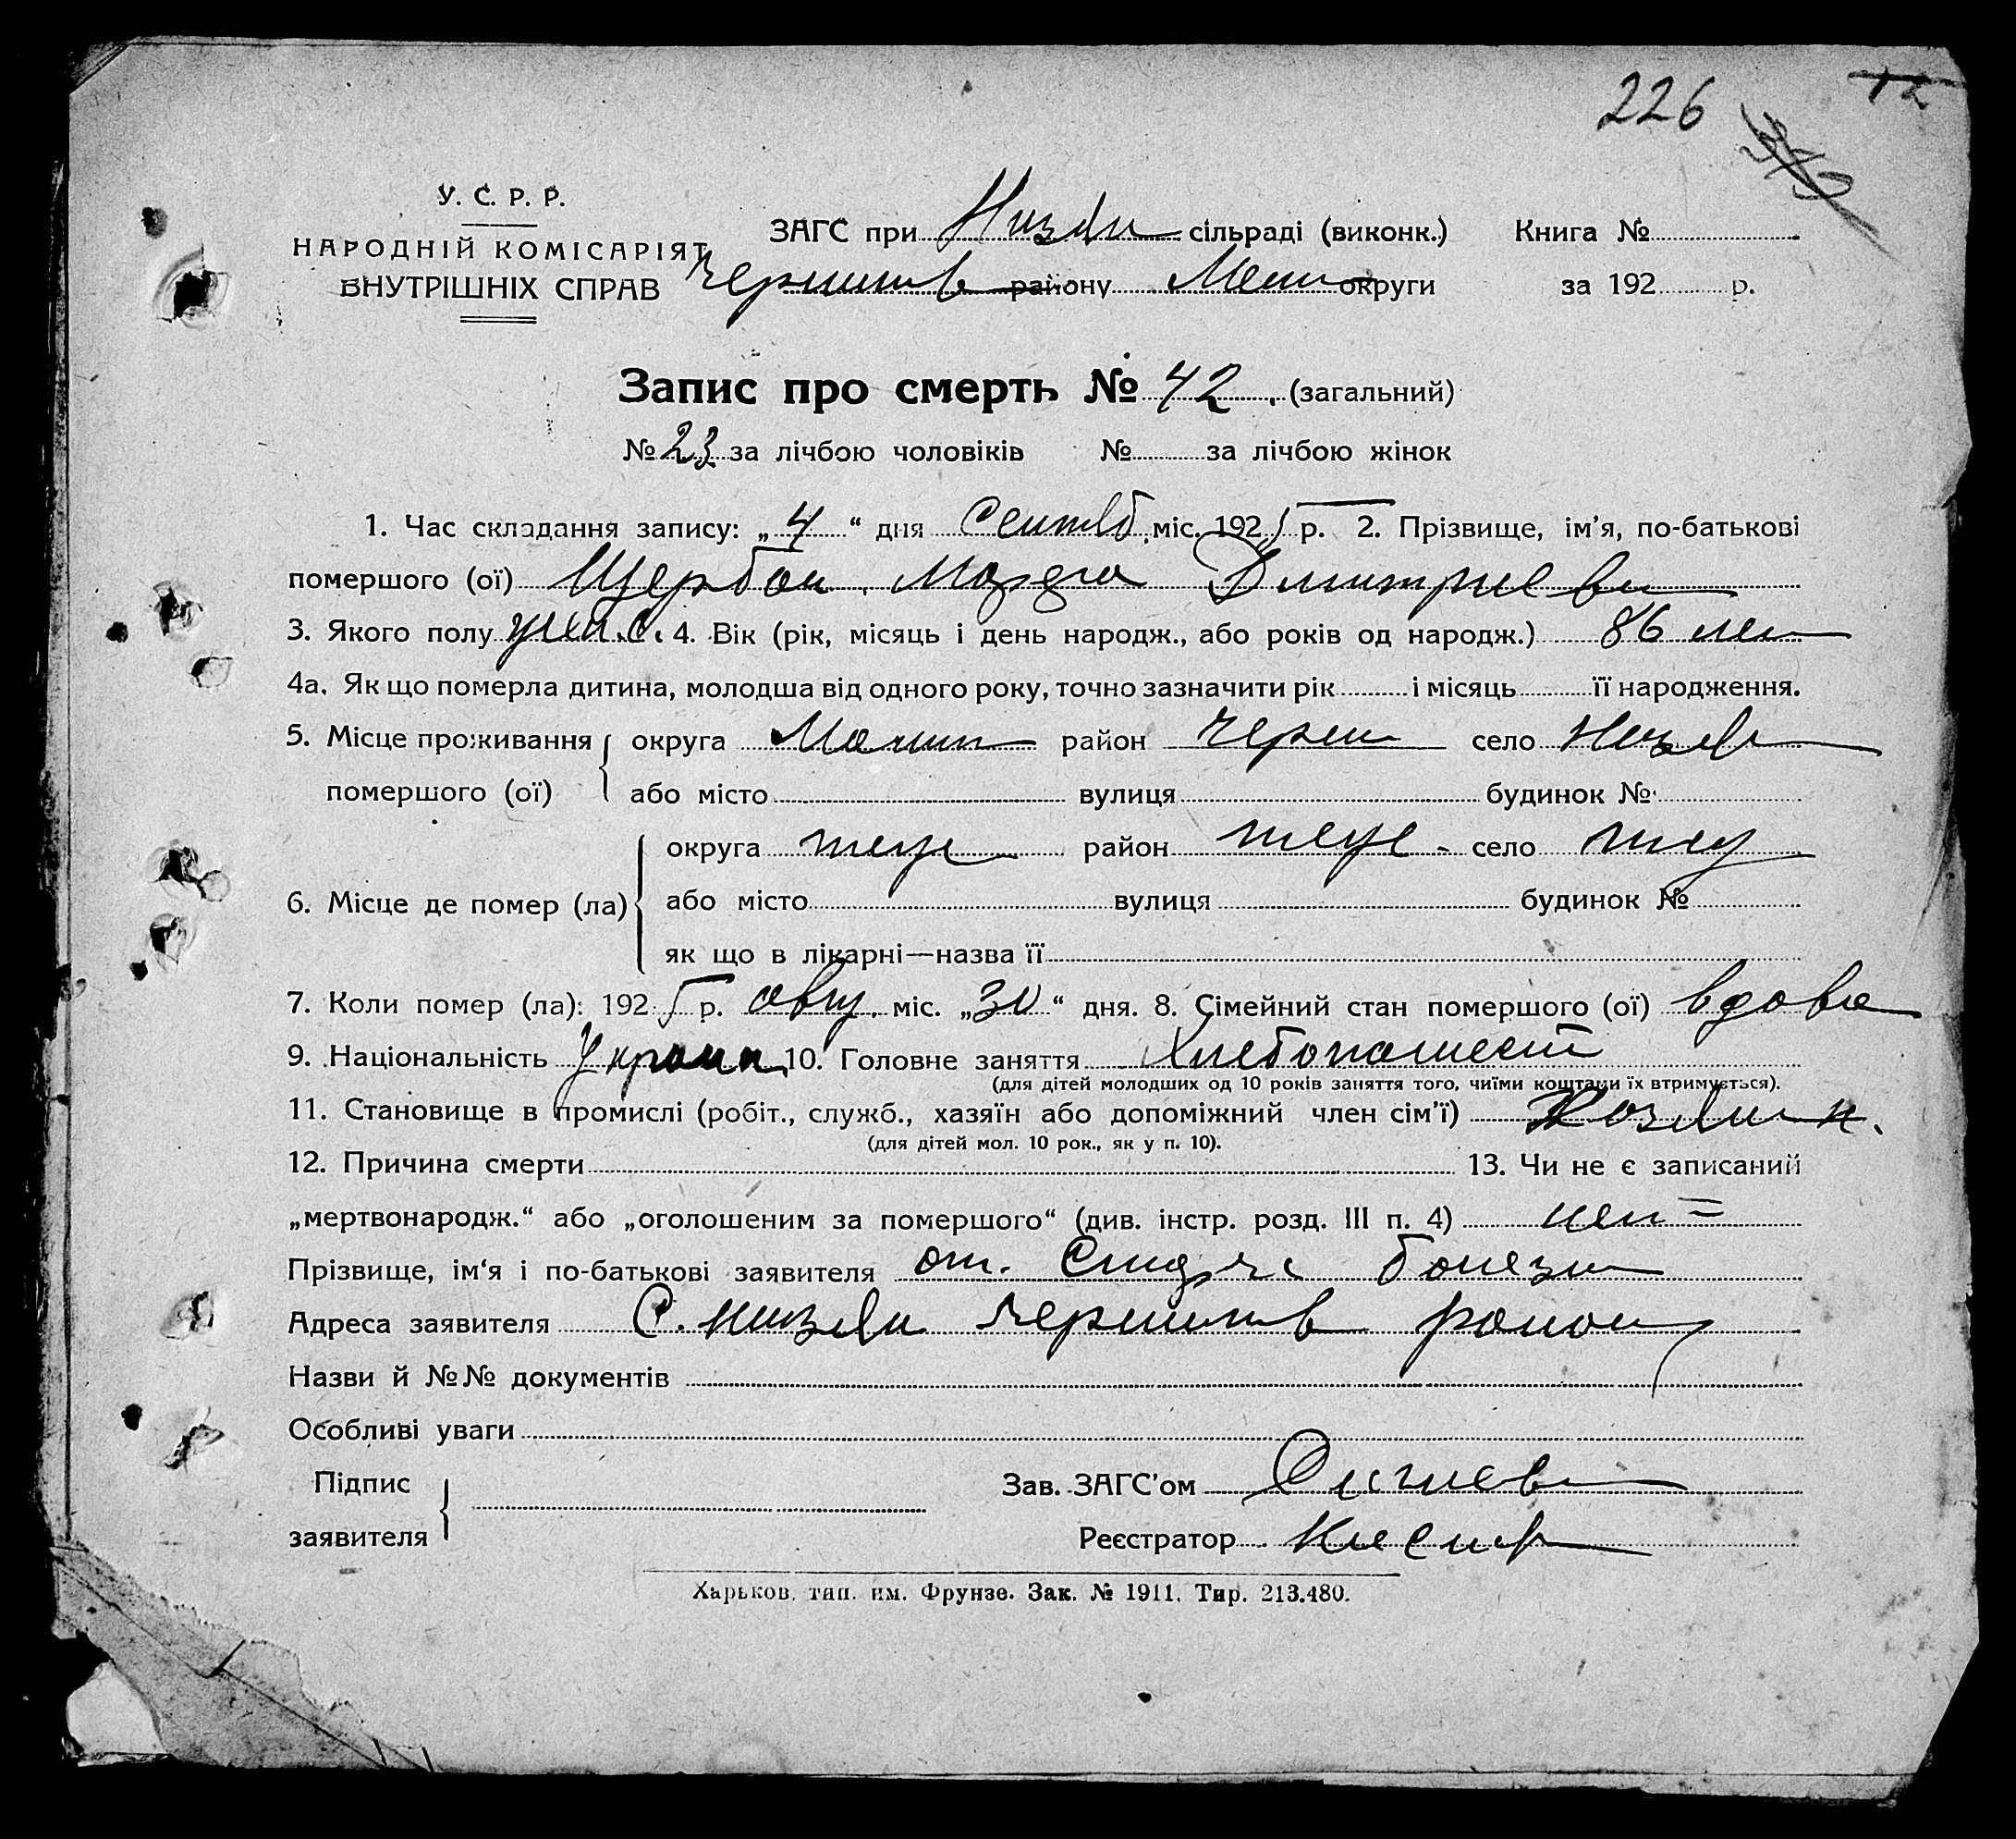 226
У. С. Р. Р.
НАРОДНІЙ КОМІСАРІЯТ
ВНУТРІШНІХ СПРАВ
ЗАГС при Низян сільраді (виконк.) Книга №
району округи за 192 р.
Запис про смерть № 42. (загальний)
№ 23 за лічбою чоловіків № за лічбою жінок
1. Час складання запису: „4“ дня Сентяб міс. 1925 р. 2. Прізвище, ім’я, по-батькові
помершого (ої) Щербак Дмитриев
3. Якого полу 4. Вік (рік, місяць і день народж., або років од народж.) 86 лет
4а. Як що померла дитина, молодша від одного року, точно зазначити рік і місяць її народження.
5. Місце проживання округа район село
помершого (ої) або місто вулиця будинок №
округа район село
6. Місце де помер (ла) або місто вулиця будинок №
як що в лікарні—назва її
7. Коли помер (ла): 1925 р. авг. міс. „30“ дня. 8. Сімейний стан помершого (ої) вдова
9. Національність Украин 10. Головне заняття Хлебопашест
(для дітей молодших од 10 років заняття того, чиїми коштами їх втримується).
11. Становище в промислі (робіт., служб., хазяїн або допоміжний член сім’ї)
(для дітей мол. 10 рок., як у п. 10).
12. Причина смерти 13. Чи не є записаний
„мертвонародж.“ або „оголошеним за помершого“ (див. інстр. розд. III п. 4) нет =
Прізвище, ім‘я і по-батькові заявителя от. болезн
Адреса заявителя С. Низян район
Назви й №№ документів
Особливі уваги
Підпис
заявителя
Зав. ЗАГС’ом
Реєстратор
Харьков. тип. им. Фрунзе. Зак. № 1911. Тир. 213.480.